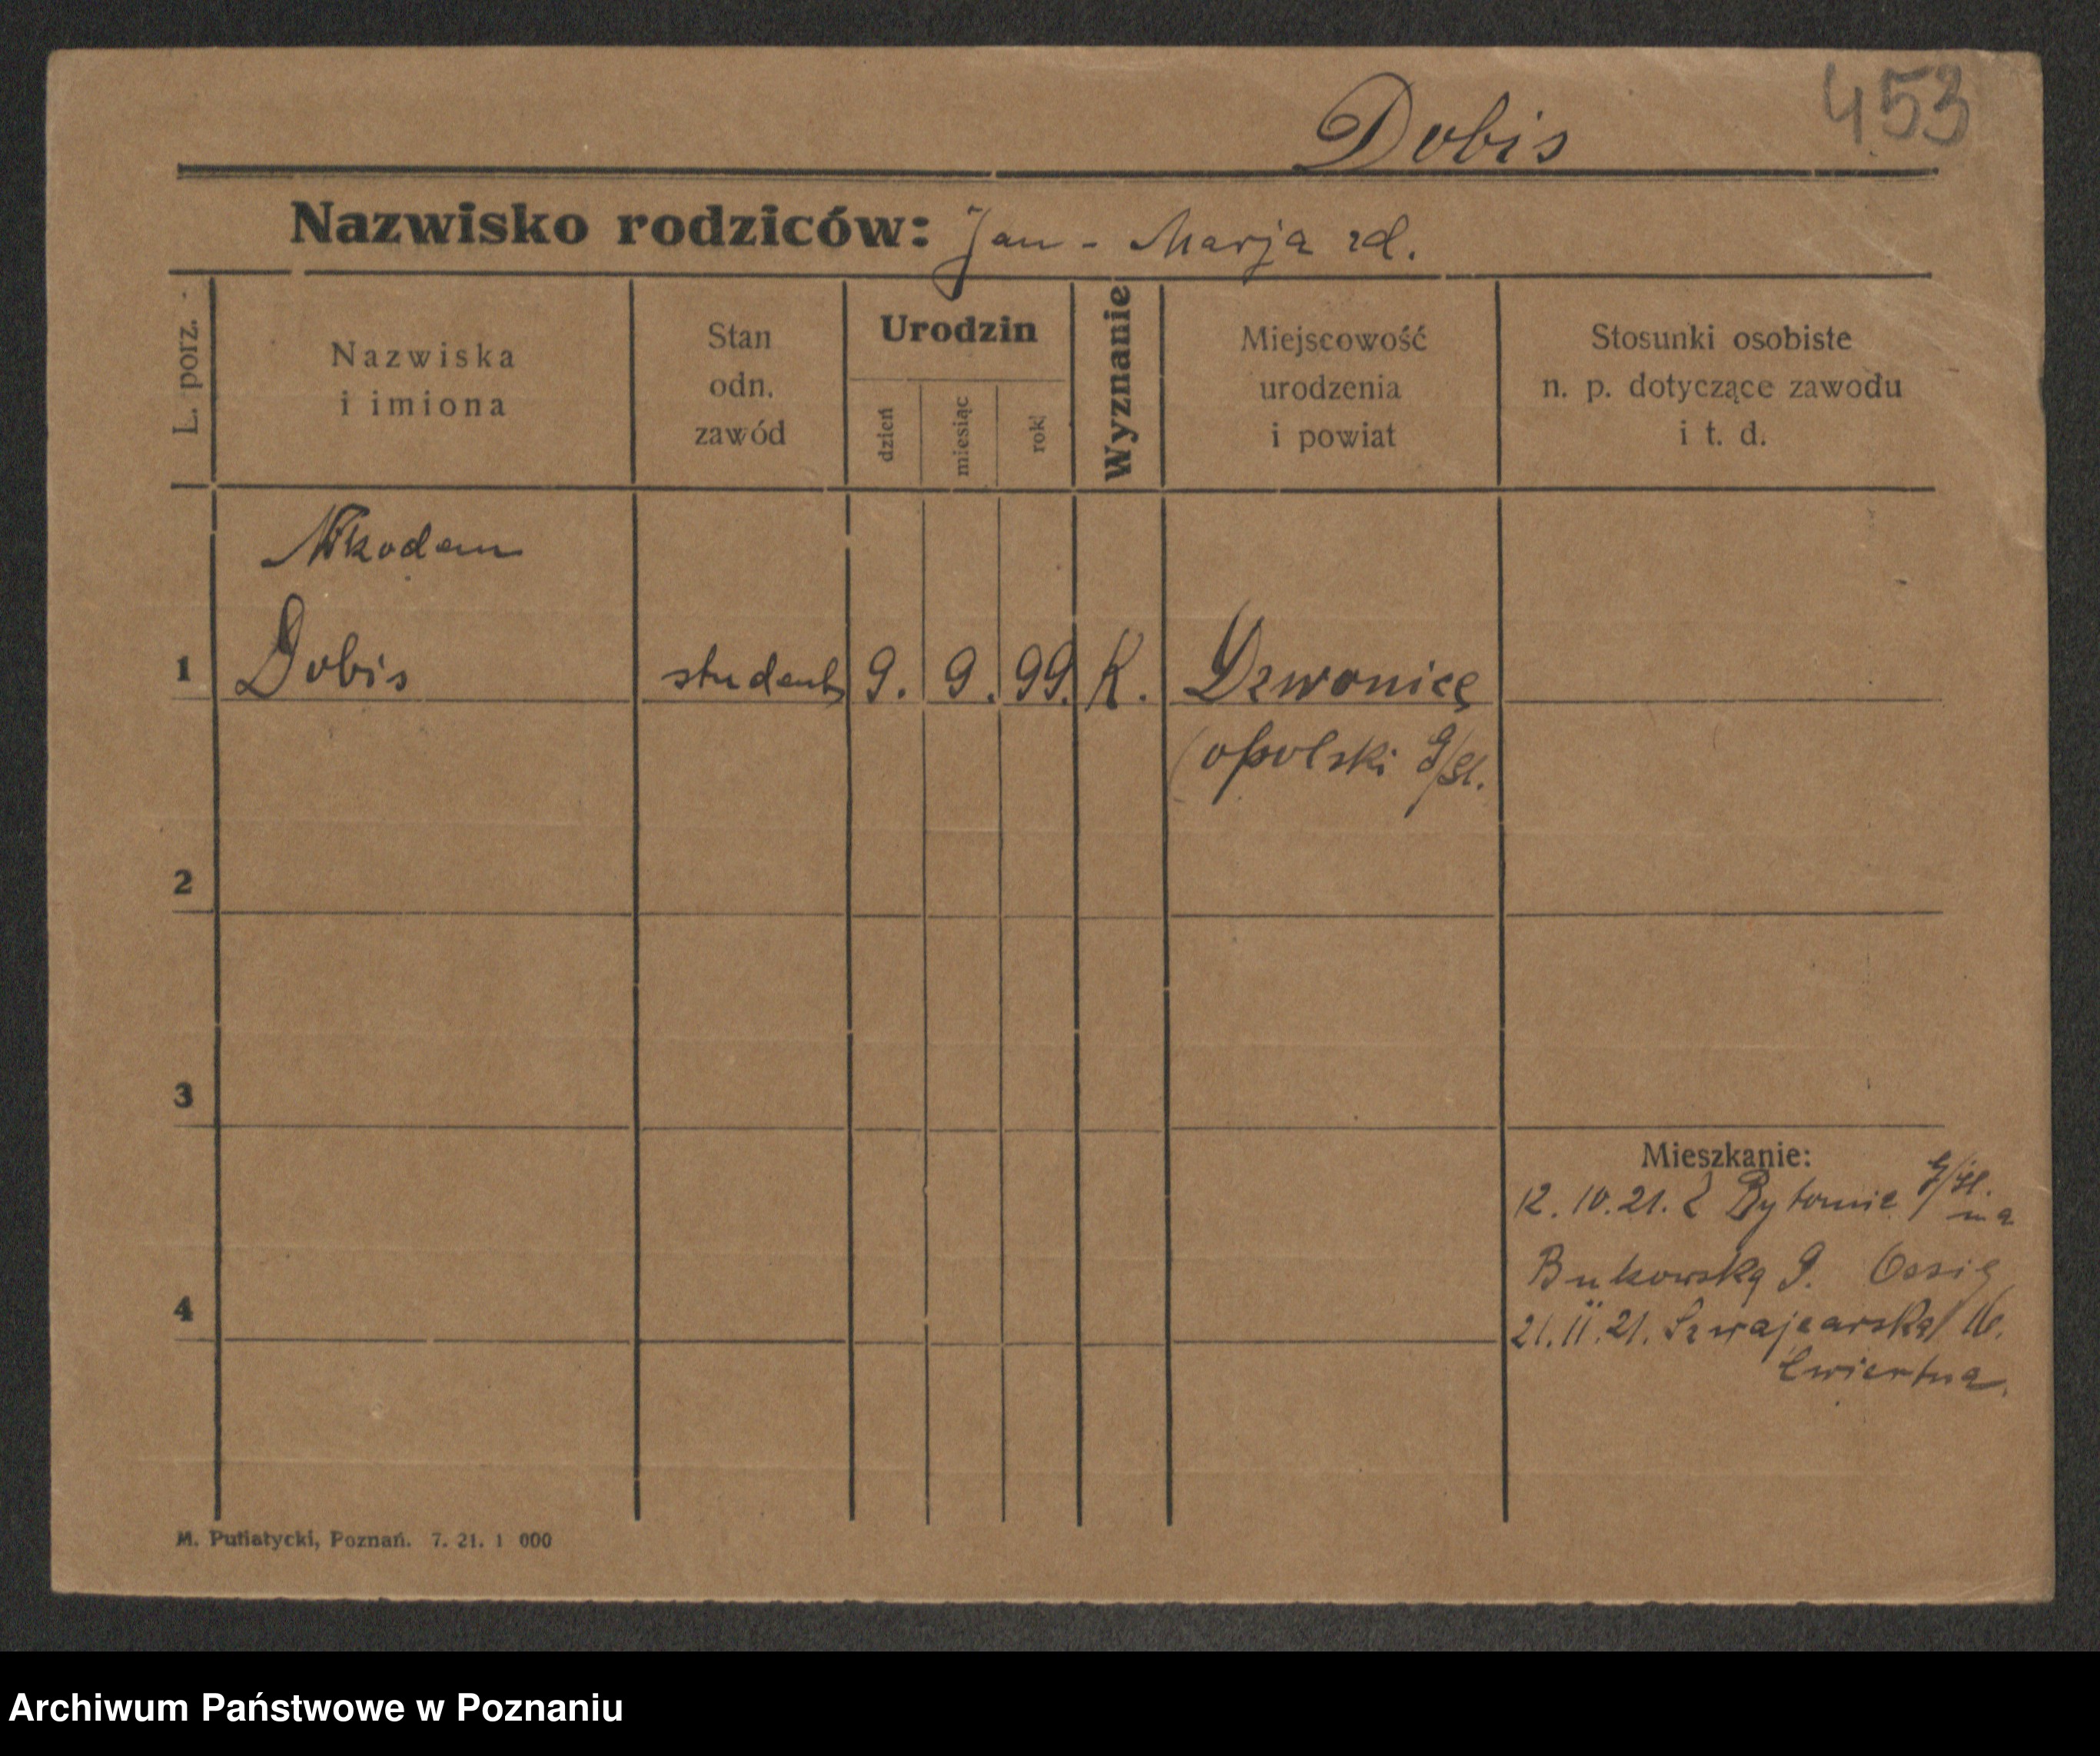 453
Dobis
Nazwisko rodziców: Jan - Marja zd.
L. porz.
Nazwiska i imiona
Stan odn. zawód
Urodzin
dzień
miesiąc
rok
Wyznanie
Miejscowość urodzenia i powiat
Stosunki osobiste n. p. dotyczące zawodu i t. d.
Nikodem
1 Dobis student 9. 9. 99. K. Dzwonice
(opolski G/Śl.
2
3
Mieszkanie:
12. 10. 21. z Bytomie G/Śl. na
Bukowską 9.
4
21. 11. 21. Szwajcarska 16.
Ćwiertna.
M. Putiatycki, Poznań. 7. 21. 1 000
Archiwum Państwowe w Poznaniu